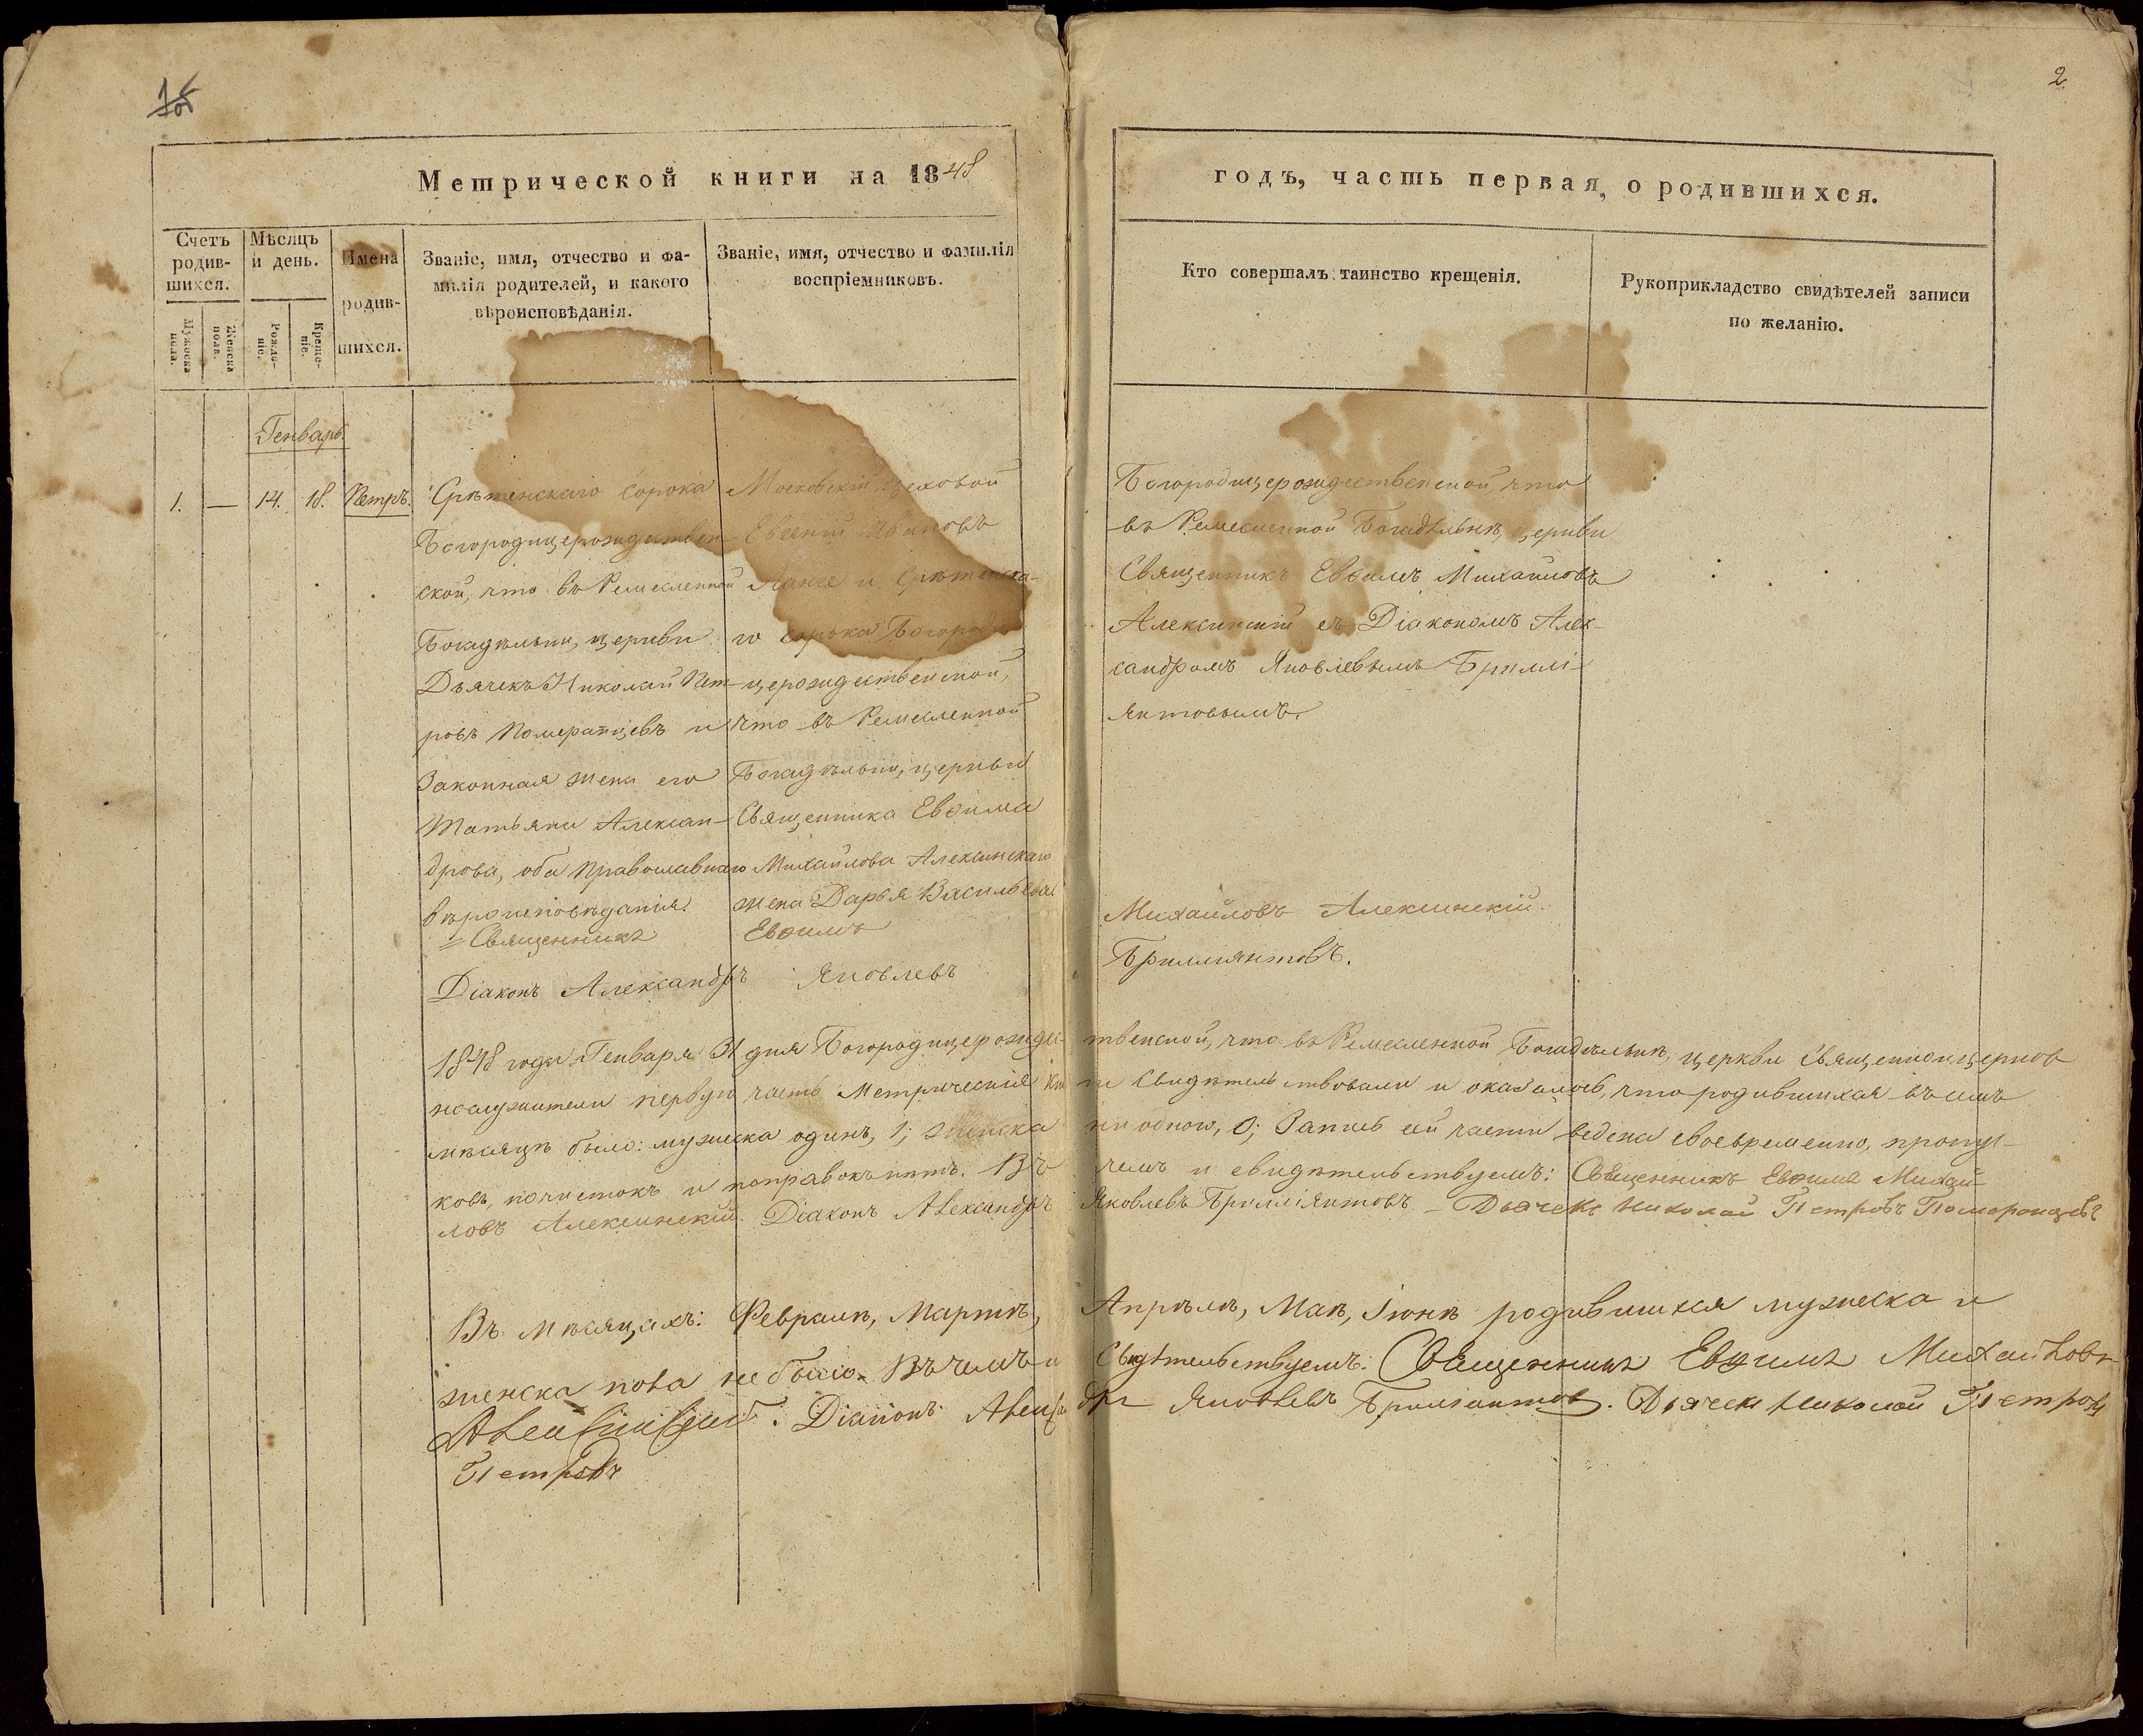 2
Метрической книги на 1848
годъ, часть первая, о родившихся.
Счетъ родив-шихся.
Мужеска пола.
Женска пола.
Мѣсяцъ и день.
Рожде-ніе.
Креще-ніе.
Имена родив-шихся.
Званіе, имя, отчество и фа-
милія родителей, и какого
вѣроисповѣданія.
Званіе, имя, отчество и фамилія
воспріемниковъ.
Кто совершалъ таинство крещенія.
Рукоприкладство свидѣтелей записи
по желанію.
Генварь.
1. — 14. 18. Петръ.
Срѣтенскаго сорока
Богородицерождествен-
ской, что въ Ремесленной
Богадѣльни, церкви
Дьячекъ Николай Пет-
ровъ Померанцевъ и
Законная жена его
Татьяна Алексан-
дрова, оба Православнаго
вѣроисповѣданія.
Московскій цеховой
Евгеній Ивановъ
Ланге и Срѣтенска-
го сорока Богороди-
церождественской,
что въ Ремесленной
Богадѣльни, церкви
Священника Евѳима
Михайлова Алексинскаго
жена Дарья Васильева.
Богородицерождественской, что
въ Ремесленной Богадѣльнѣ, церкви
Священникъ Евѳимъ Михайловъ
Алексинскій съ Діакономъ Алек-
сандромъ Яковлевымъ Брилли-
янтовымъ.
Священникъ Евѳимъ Михайловъ Алексинскій.
Діаконъ Александръ Яковлевъ Бриллиянтовъ.
1848 года Генваря 31 дня Богородицерождес-твенской, что въ Ремесленной Богадѣльнѣ, церкви Священноцерков
нослужители первую часть Метрической Кни ги свидѣтельствовали и оказалось, что родившихся въ семъ
мѣсяцѣ было: мужеска одинъ, 1; женска ни одного, 0; Запись сей части ведена своевременно, пропус-
ковъ, почистокъ и поправокъ нѣтъ. Въ чемъ и свидѣтельствуемъ: Священникъ Евѳимъ Михай-
ловъ Алексинскій. Діаконъ Александръ Яковлевъ Бриллiянтовъ – Дьячекъ Николай Петровъ Померанцевъ
Въ мѣсяцахъ: Февралѣ, Мартѣ, Апрѣлѣ, Маѣ, Іюнѣ родившихся мужеска и
женска пола не было. Въ чемъ и Свидѣтельствуемъ: Священникъ Евѳимъ Михайловъ
Алексинскій. Діаконъ Александръ Яковлевъ Брилiантов. Дьячекъ Николай Петровъ
Петровъ